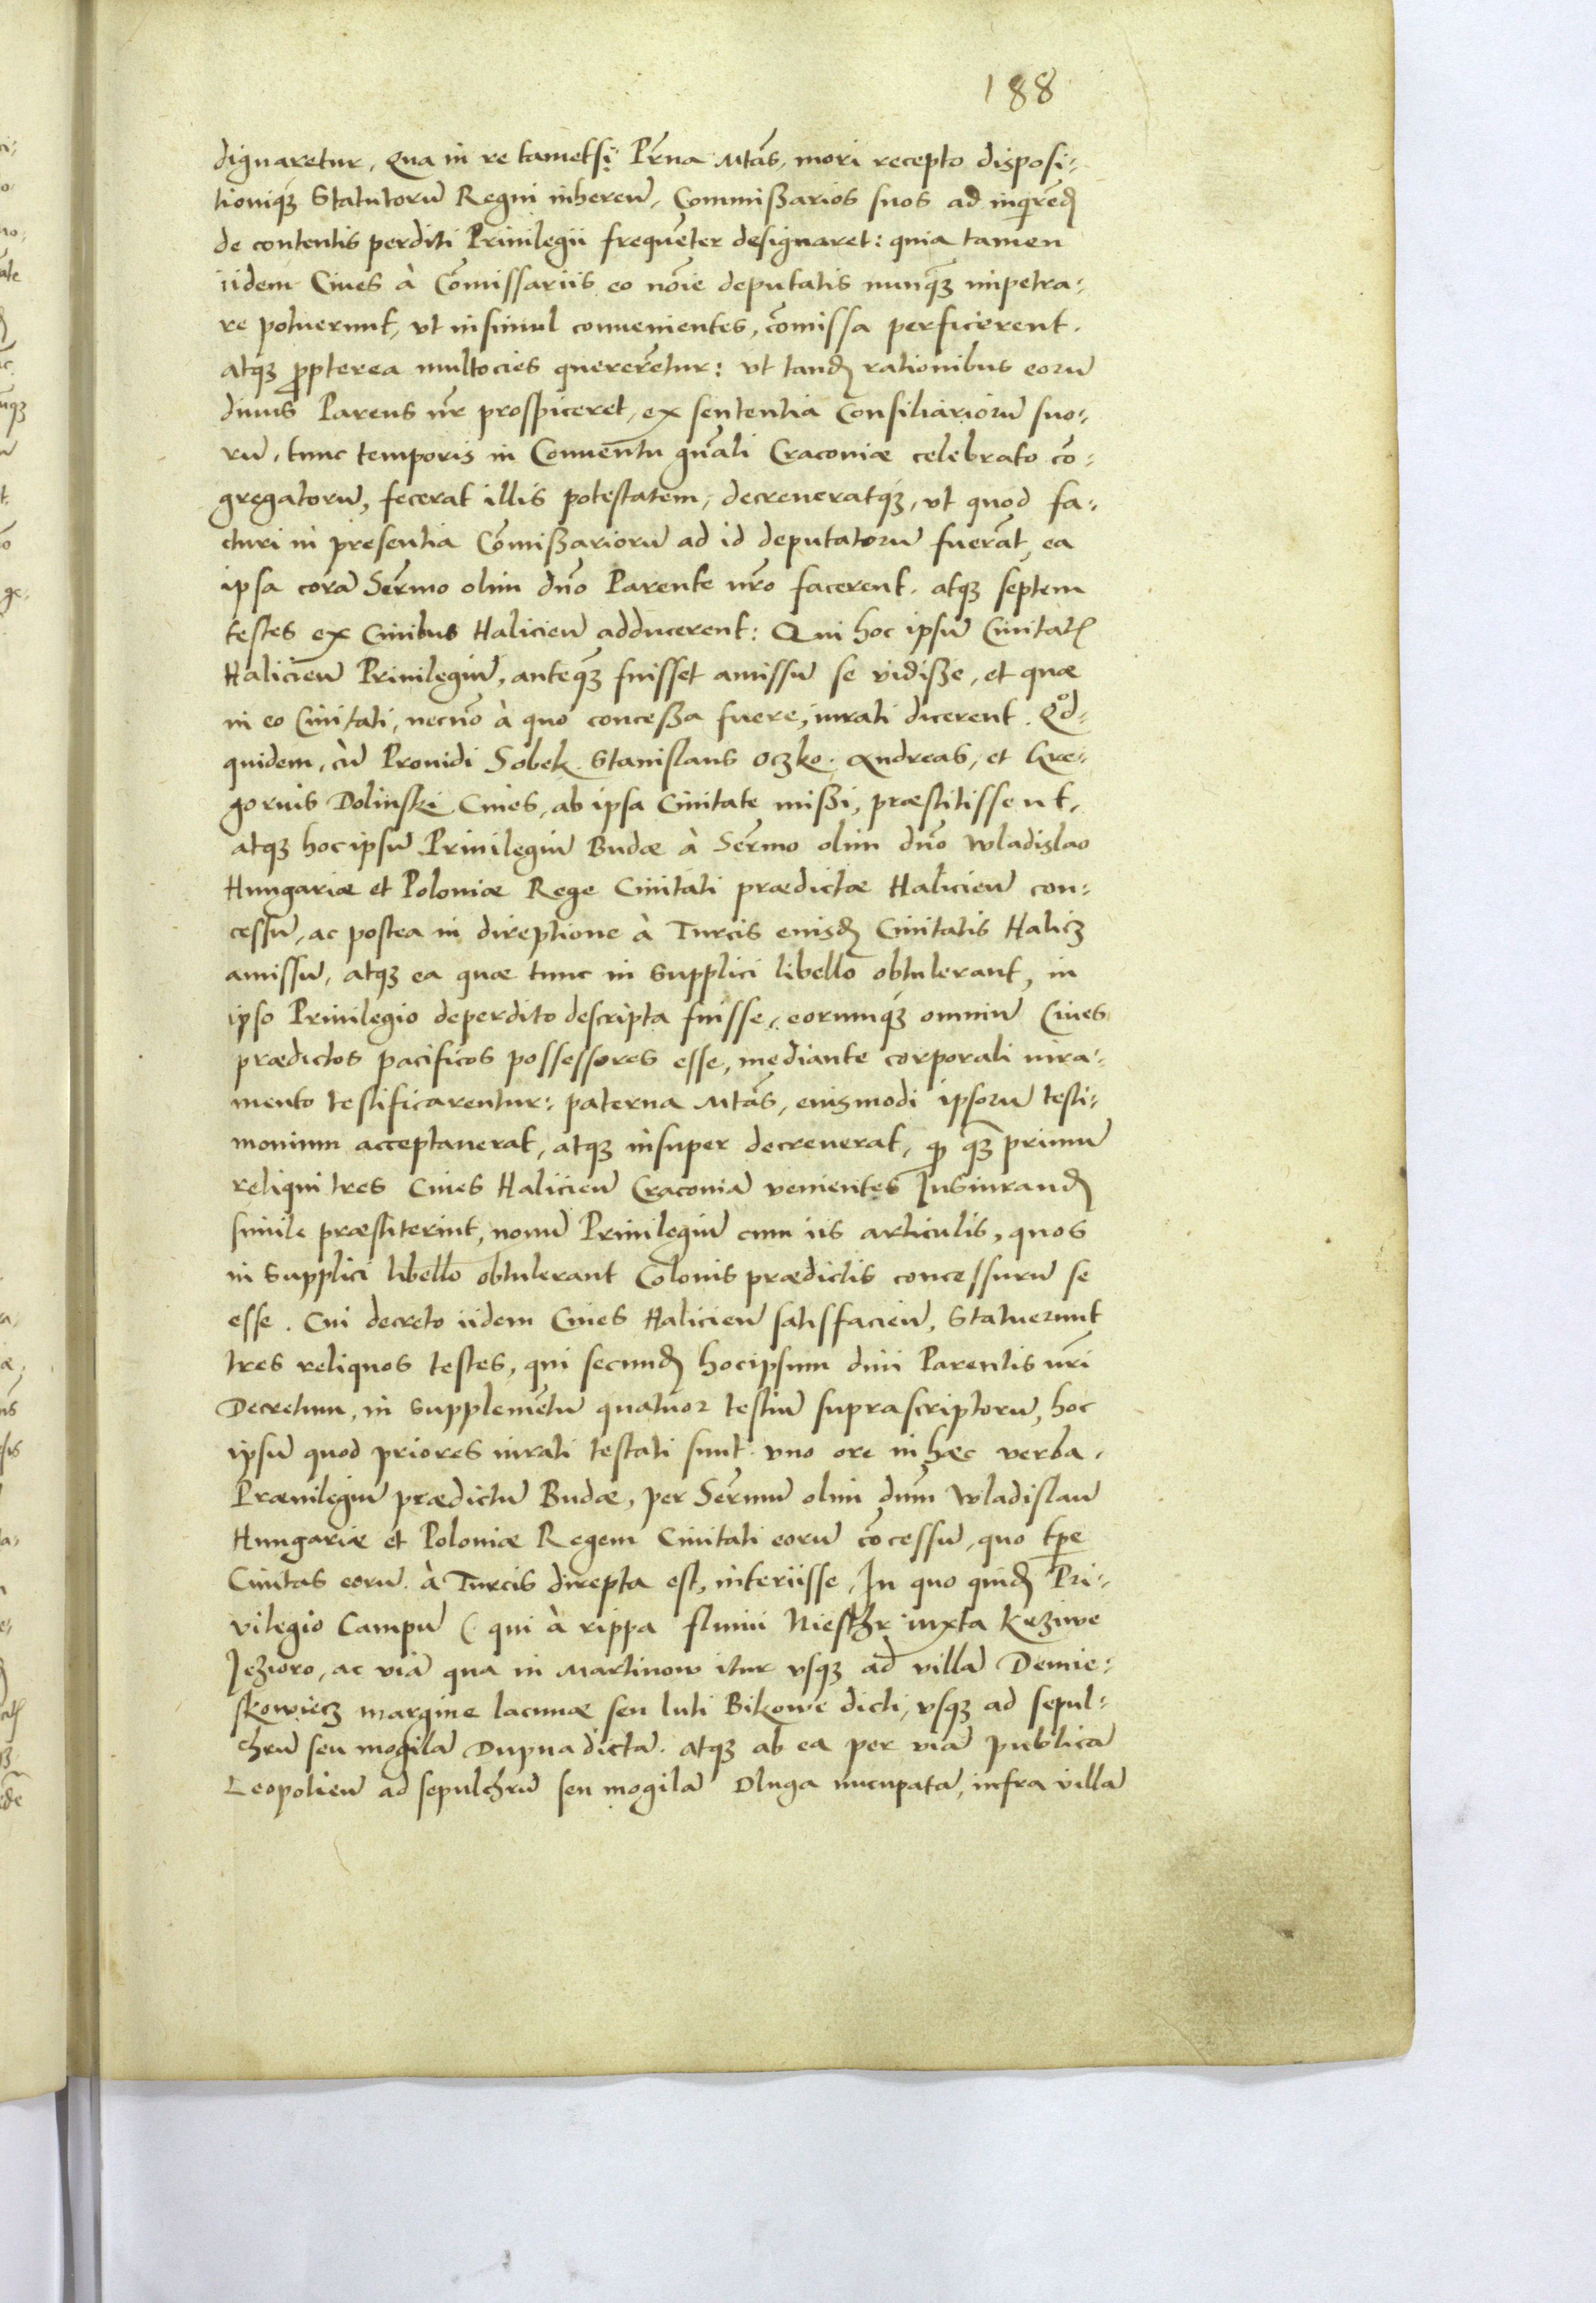 188
dignaretur, Qua in re tametsi Pr̃na Mtãs, mori recepto disposi-
tioniq̃ Statutorũ Regni inhereñ, Commissarios suos ad inqirend̃
de contentis perditi Privilegii frequẽter designaret: quia tamen
iidem Cives à Cõmissariis eo nõie deputatis nunq̃ impetra-
re potuerunt, vt insimul convenientes, cõmissa perficerent.
atq̃ ꝓpterea multocies quererẽtur: vt tand̃ rationibus eorũ
divus Parens nr̃ prospiceret, ex sententia Consiliariorũ suo-
rũ, tunc temporis in Conventu gñali Cracoviæ celebrato cõ-
gregatorũ, fecerat illis potestatem, decreveratq̃, vt quod fa-
cturi in presentia Cõmissariorũ ad id deputatorũ fuerãt, ea
ipsa corã Serm̃o olim dño Parente nr̃o facerent. atq̃ septem
testes ex Civibus Halicieñ adducerent: Qui hoc ipsũ Civitatis
Halicieñ Privilegiũ, anteq̃ fuisset amissũ se vidisse, et quæ
in eo Civitati, necnõ à quo concessa fuere, iurati dicerent. Qd̊
quidem, cũ Providi Sobek. Stanislaus Oczko. Andreas, et Gre-
gorius Dolinski Cives, ab ipsa Civitate missi, præstitissent,
atq̃ hoc ipsũ Privilegiũ Budæ à Serm̃o olim dño Wladislao
Hungariæ et Poloniæ Rege Civitati prædictæ Halicieñ con-
cessũ, ac postea in direptione à Turcis eiusd̃ Civitatis Halicz
amissũ, atq̃ ea quæ tunc in supplici libello obtulerant, in
ipso Privilegio deperdito descripta fuisse, eorumq̃ omniũ Cives
prædictos pacificos possessores esse, mediante corporali iura-
mento testificarentur: paterna Mtãs, eiusmodi ipsorũ testi-
monium acceptaverat, atq̃ insuper decreverat, qꝫ q̃ primũ
reliqui tres Cives Halicieñ Cracoviã venientes Iusiurand̃
simile præstiterint, novũ Privilegiũ cum iis articulis, quos
in supplici libello obtulerant Colonis prædictis concessurũ se
esse. Cui decreto iidem Cives Halicieñ satisfacieñ, Statuerunt
tres reliquos testes, qui secund̃ hocipsum divi Parentis nr̃i
Decretum, in supplemẽtũ quatuor testiũ suprascriptorũ, hoc
ipsũ quod priores iurati testati sunt. vno ore in hæc verba,
Prævilegiũ prædictũ Budæ, per Serm̃ũ olim dñm Wladislaũ
Hungariæ et Poloniæ Regem Civitati eorũ cõcessũ, quo tp̃e
Civitas eorũ à Turcis direpta est, interiisse, In quo quid̃ Pri-
vilegio Campũ (qui à rippa fluvii Niesthr iuxta Krziwe
Jezioro, ac viã qua in Martinow itur vsq̃ ad villã Demie-
skowicz margine lacunæ seu luti Bikowe dicti, vsq̃ ad sepul-
chrũ seu mogilã Dupna dictã. atq̃ ab ea per viã publicã
Leopolieñ ad sepulchrũ seu mogilã Dluga nũcupatã, infra villã